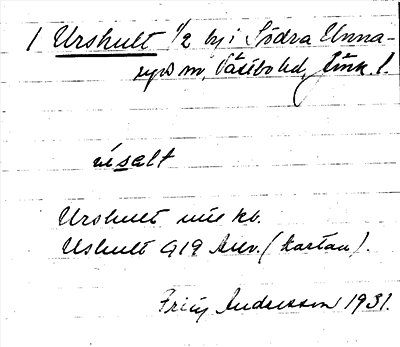 1 Urshult 1/2 by i Södra Unna-
ryds sn, Västbo hd, Jönk. l.
úsált
Urshult uttr kb.
Ushult G19 Arev. (kartan).
Andersson 1931.